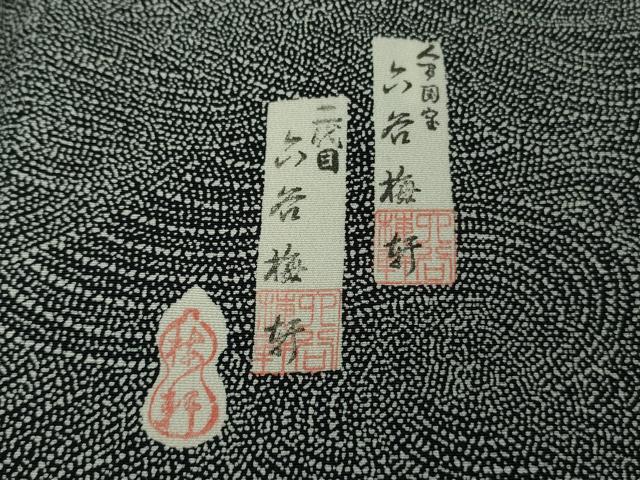 人間国宝
六谷梅軒
二代目
六谷梅軒
六谷
梅軒
六谷
梅軒